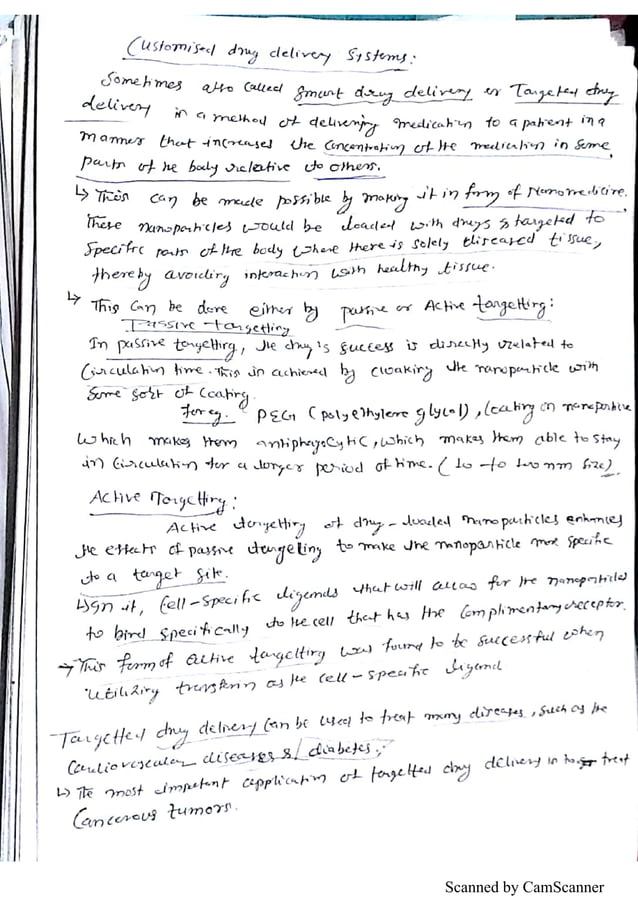 Customised drug delivery Systems:
Sometimes also called Smart drug delivery or Targeted drug
delivery is a method of delivering medication to a patient in a
manner that increases the concentration of the medication in some
parts of the body relative to others.
↳ This can be made possible by making it in form of Nanomedicine.
These nanoparticles would be loaded with drugs & targeted to
specific parts of the body where there is solely diseased tissue,
thereby avoiding interaction with healthy tissue.
↳ This can be done either by passive or Active targetting:
Passive targetting
In passive targetting, the drug's success is directly related to
Circulation time. This is achieved by cloaking the nanoparticle with
some sort of coating.
For eg. PEG (polyethylene glycol), coating on nanoparticle
which makes them antiphagocytic, which makes them able to stay
in circulation for a longer period of time. (10 to 100 nm size).
Active Targetting:
Active targetting of drug-loaded nanoparticles enhances
the effects of passive targeting to make the nanoparticle more specific
to a target site.
↳ In it, cell-specific ligands that will allow for the nanoparticles
to bind specifically to the cell that has the complimentary receptor.
→ This form of active targetting was found to be successful when
utilizing transferrin as the cell-specific ligand
Targetted drug delivery can be used to treat many diseases, such as the
cardiovascular diseases & diabetes,
↳ The most important application of targetted drug delivery is to treat
Cancerous tumors.
Scanned by CamScanner